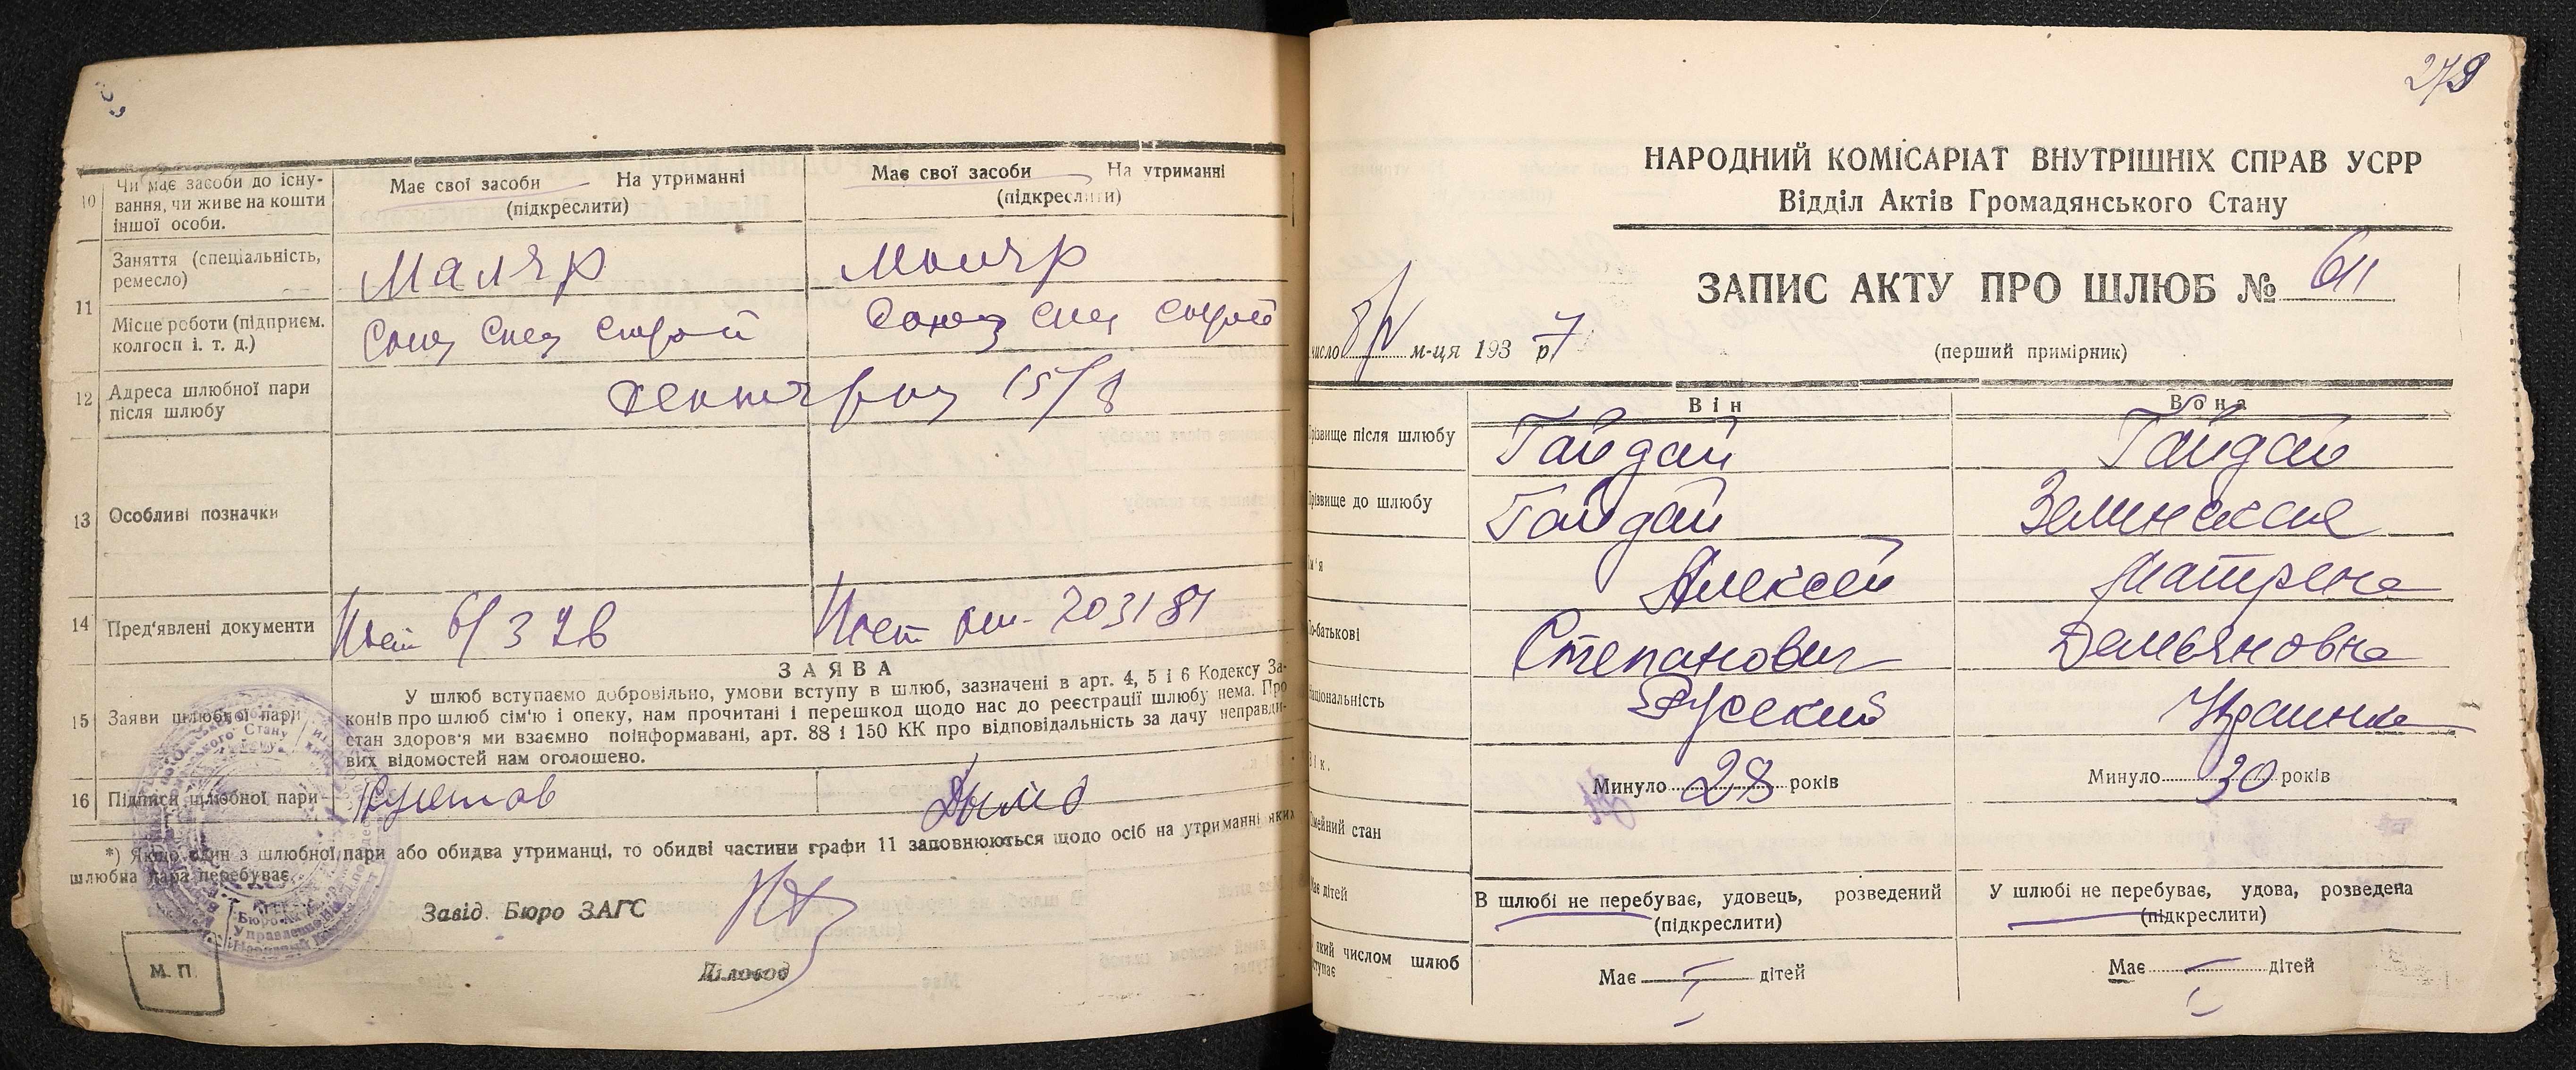 10 Чи має засоби до існу-
вання, чи живе на кошти
іншої особи.
Має свої засоби На утриманні
(підкреслити)
Має свої засоби На утриманні
(підкреслити)
11 Заняття (спеціальність,
ремесло)
Маляр
Маляр
Місце роботи (підприєм.
колгосп і. т. д.)
Союз Спец Строй
Союз Спец Строй
12 Адреса шлюбної пари
після шлюбу
15/8
13 Особливі позначки
14 Пред'явлені документи
203181
ЗАЯВА
15 Заяви шлюбної пари
У шлюб вступаємо добровільно, умови вступу в шлюб, зазначені в арт. 4, 5 і 6 Кодексу За-
конів про шлюб сім'ю і опеку, нам прочитані і перешкод щодо нас до реєстрації шлюбу нема. Про
стан здоров'я ми взаємно поінформавані, арт. 88 і 150 КК про відповідальність за дачу неправди-
вих відомостей нам оголошено.
16 Підписи шлюбної пари
*) Якщо один з шлюбної пари або обидва утриманці, то обидві частини графи 11 заповнюються щодо осіб на утриманні яких
шлюбна пара перебуває.
Завід. Бюро ЗАГС
Діловод
М. П.
279
НАРОДНИЙ КОМІСАРІАТ ВНУТРІШНІХ СПРАВ УСРР
Відділ Актів Громадянського Стану
ЗАПИС АКТУ ПРО ШЛЮБ № 611
число 8/V м-ця 193 7 р
(перший примірник)
Він
Вона
різвище після шлюбу Гайдай Гайдай
різвище до шлюбу Гайдай
м'я Алексей Матрена
о-батькові Степанович Демьяновна
аціональність Русский Украинка
Вік. Минуло 28 років Минуло 30 років
імейний стан
В шлюбі не перебуває, удовець, розведений
(підкреслити)
У шлюбі не перебуває, удова, розведена
(підкреслити)
Має дітей
Має — дітей
Має — дітей
який числом шлюб
ступає